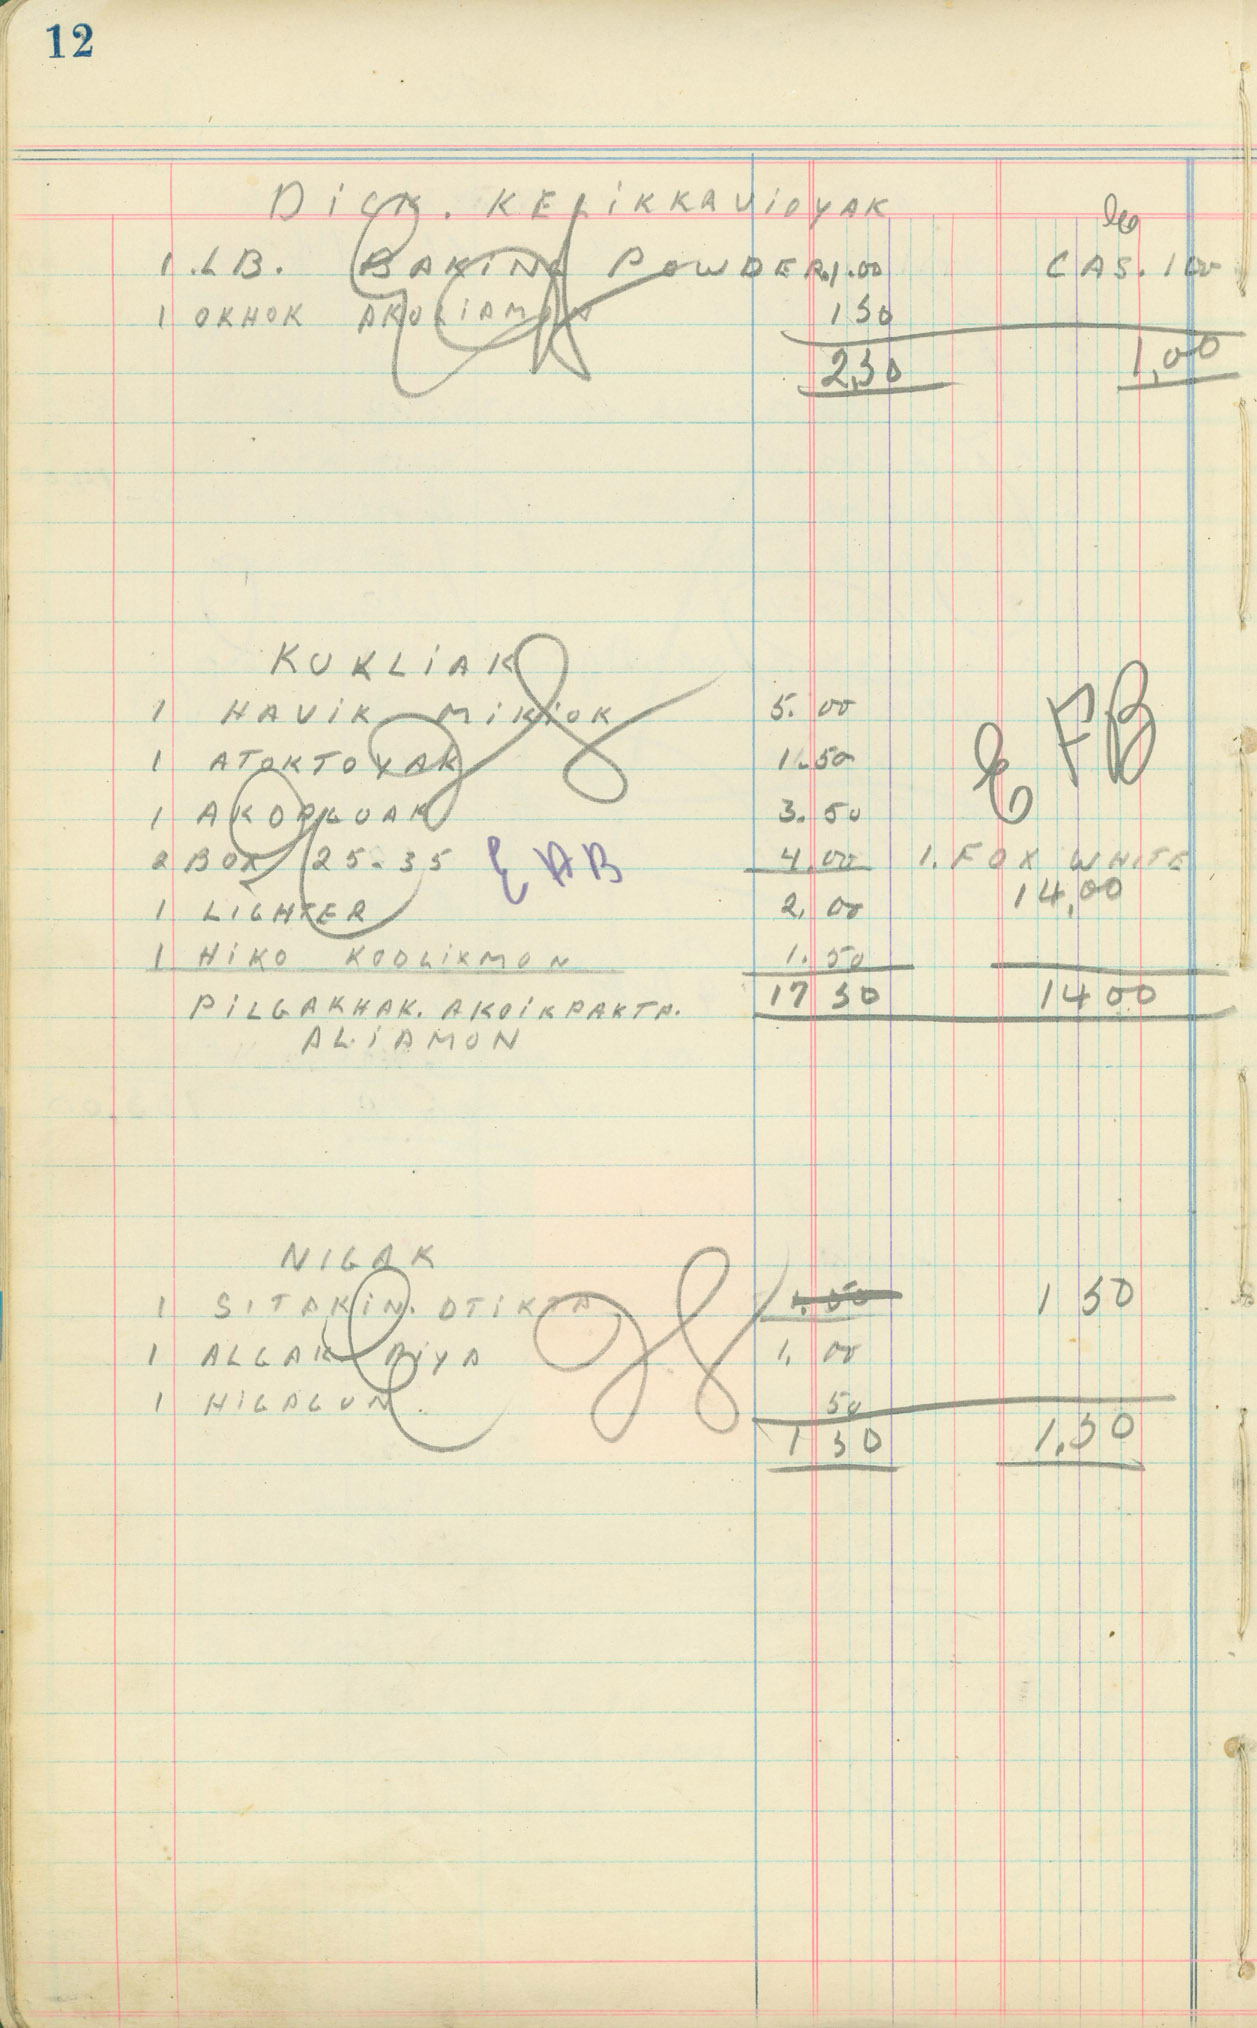 12
DICK. KELIKKAVIOYAK
1 .LB. BAKING POWDER. 1.00 CAS. 1 00
1 OKHOK AKULIAMON 1 50
2,50 1,00
KUKLIAK
1 HAVIK MIKIOK 5. 00
1 ATOKTOYAK 1.50
1 AKOPLUAK 3. 50
2 BOX 25-35 4.00 1. FOX WHITE
14,00
1 LIGHTER 2, 00
1 HIKO KODLIKMON 1. 50
17 50 14 00
PILGAKHAK. AKOIKPAKTA.
ALIAMON
NIGAK
1 SITAKIN. OTIKTA 1.50 1 50
1 ALGAK PIYA 1. 00
1 HIGAGUN. 50
1 50 1.50